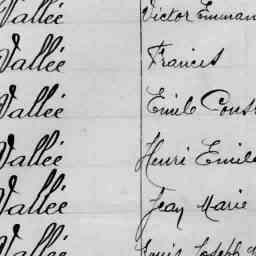 Vallée Victor Emman
Vallée Francis
Vallée Emile Cons
Vallée Henri Emile
Vallée Jean Marie
Vallée Louis Joseph